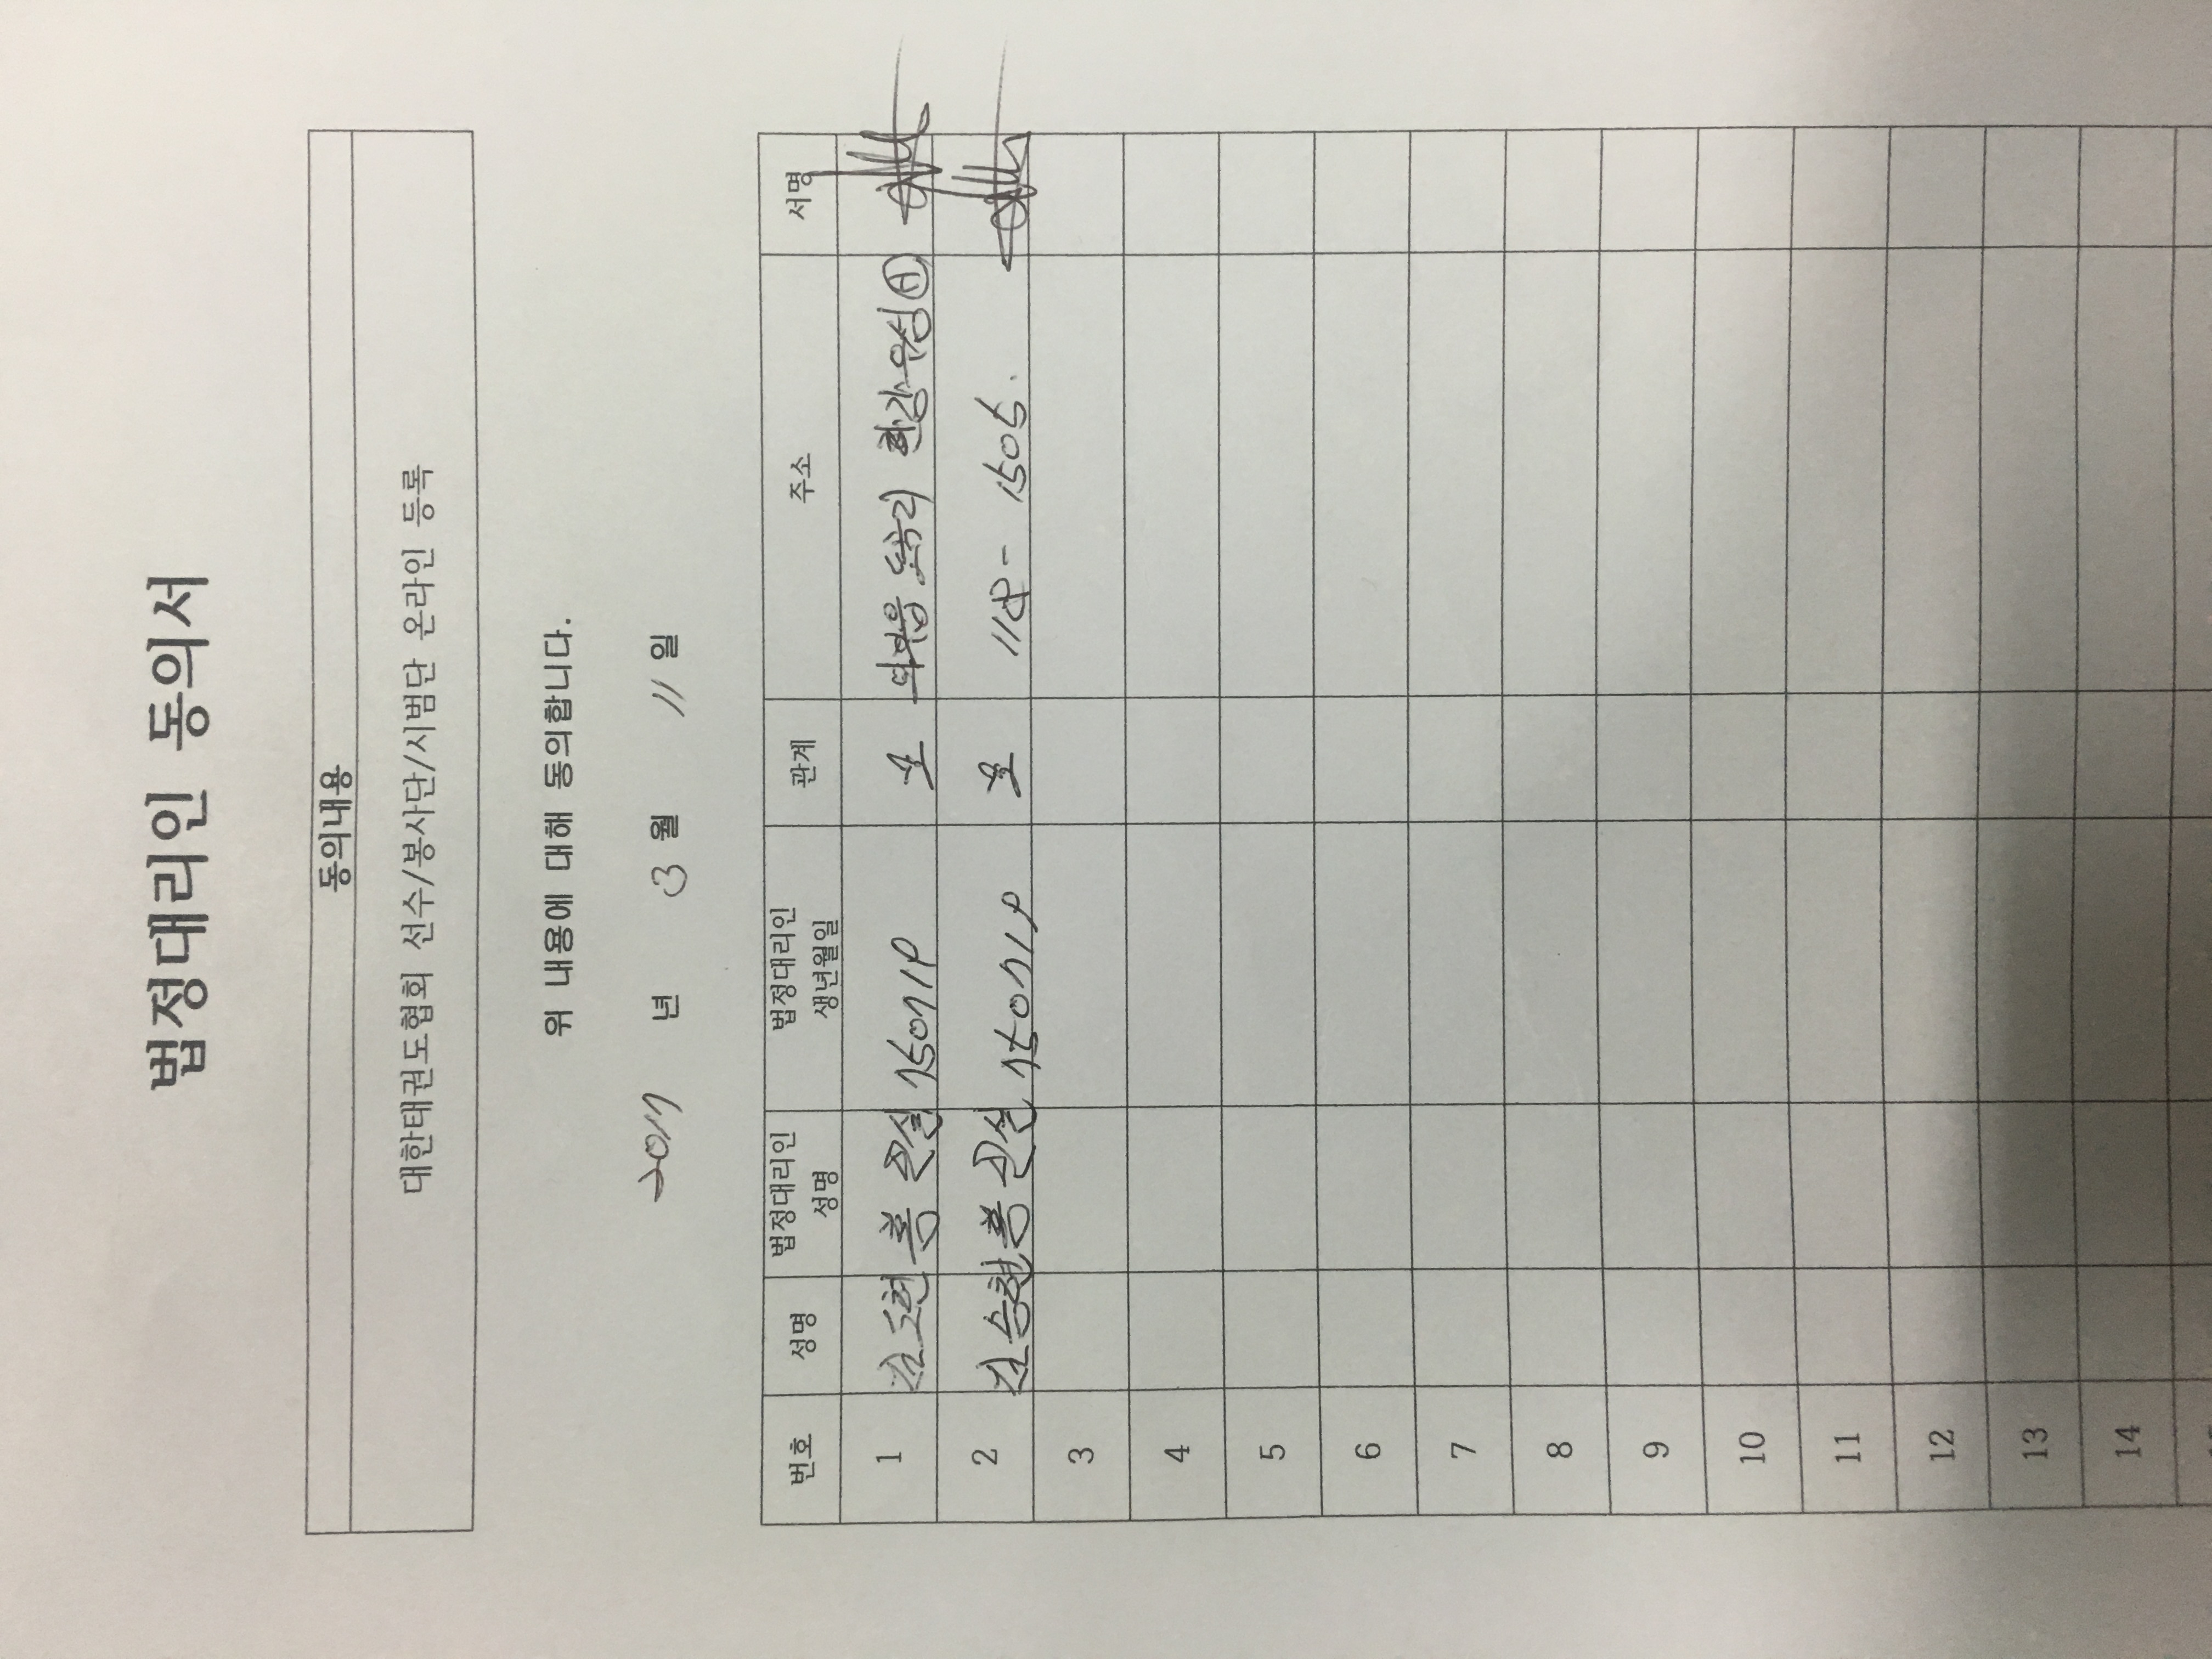 법정대리인 동의서
동의내용
대한태권도협회 선수/봉사단/시범단 온라인 등록
위 내용에 대해 동의합니다.
2017 년 3 월 11 일
번호 성명 법정대리인 성명 법정대리인 생년월일 관계 주소 서명
1 김도현 750719 모 와부읍 도곡리 한강우성
2 김승현 750719 모 118- 1505.
3
4
5
6
7
8
9
10
11
12
13
14